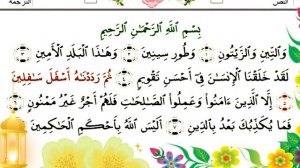 النص
الترجمة
بِسْمِ اللَّهِ الرَّحْمَٰنِ الرَّحِيمِ
وَالتِّينِ وَالزَّيْتُونِ وَطُورِ سِينِينَ وَهَٰذَا الْبَلَدِ الْأَمِينِ
لَقَدْ خَلَقْنَا الْإِنسَانَ فِي أَحْسَنِ تَقْوِيمٍ ثُمَّ رَدَدْنَاهُ أَسْفَلَ سَافِلِينَ
إِلَّا الَّذِينَ ءَامَنُوا وَعَمِلُوا الصَّالِحَاتِ فَلَهُمْ أَجْرٌ غَيْرُ مَمْنُونٍ
فَمَا يُكَذِّبُكَ بَعْدُ بِالدِّينِ أَلَيْسَ اللَّهُ بِأَحْكَمِ الْحَاكِمِينَ